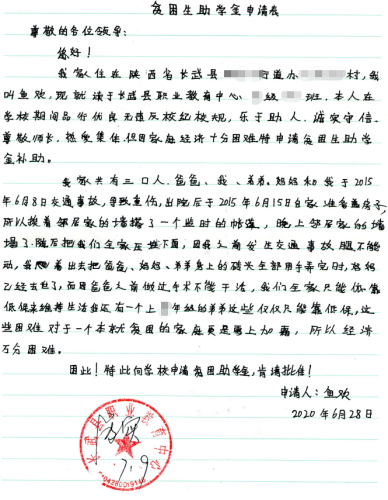 贫困生助学金申请表
尊敬的各位领导:
您好!
我家住在陕西省长武县 街道办 村,我
叫鱼欢,现就读于长武县职业教育中心 级 班.本人在
学校期间品行优良无违反校纪校规,乐于助人,诚实守信.
尊敬师长,热爱集体但因家庭经济十分困难特申请贫困生助学
金补助。
我家共有三口人.爸爸、我、弟弟.妈妈和我于2015
年6月8日交通事故,导致重伤,出院后于2015年6月15日自家准备盖房子,
所以挨着邻居家的墙搭了一个临时的帐篷,晚上邻居家的墙
塌了.随后把我们全家压在下面,因我之前发生交通事故腿不能
动,我爬着出去把爸爸、妈妈、弟弟身上的砖头全部用手弄完时,妈妈
已经去世了,而因爸爸之前做过手术不能干活,我们全家只能依靠
低保来维持生活.我还有一个上 年级的弟弟这些仅仅只能靠低保,这
些困难对于一个本就贫困的家庭更是雪上加霜,所以经济
万分困难。
因此!特此向学校申请贫困助学金,肯请批准!
申请人:鱼欢
2020年6月28日
长武县职业教育中心
7.9